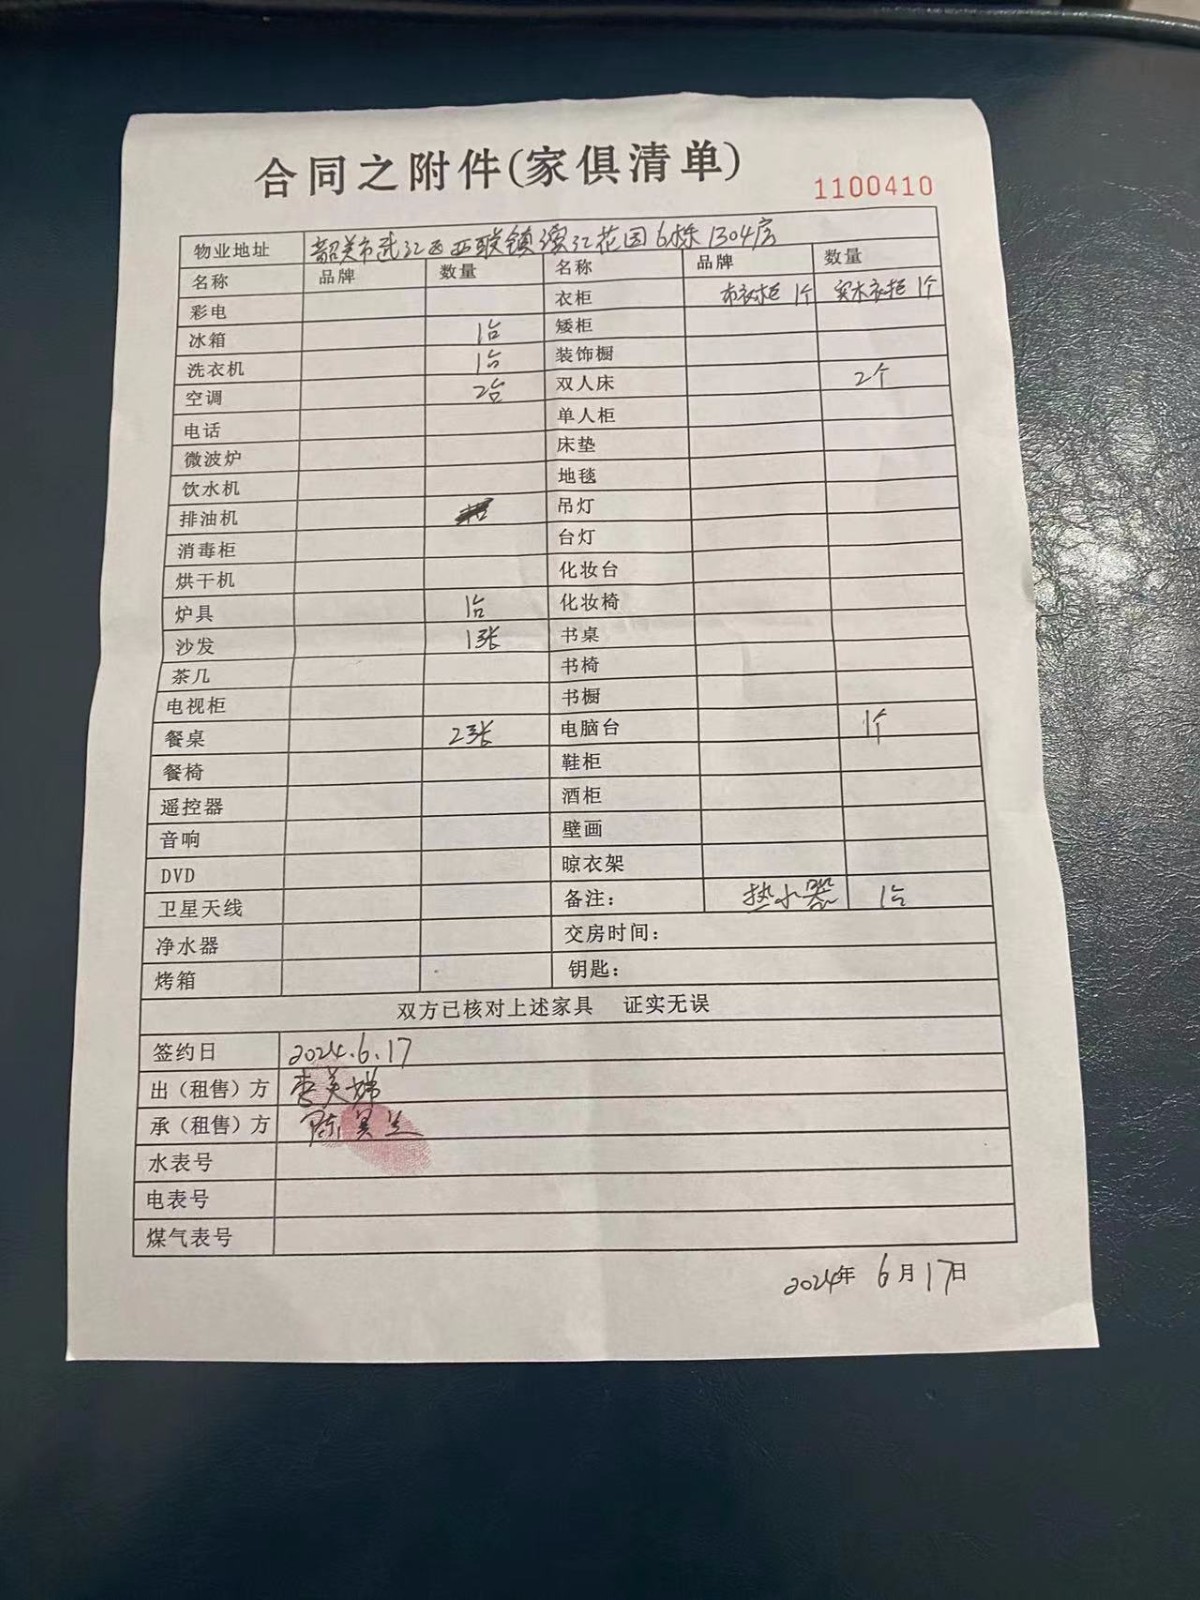 合同之附件(家俱清单)
1100410
物业地址 韶关市武江区西联镇滨江花园6栋1304房
名称 品牌 数量 名称 品牌 数量
彩电 衣柜 布衣柜 1个 实木衣柜 1个
冰箱 1台 矮柜
洗衣机 1台 装饰橱
空调 2台 双人床 2个
电话 单人柜
微波炉 床垫
饮水机 地毯
排油机 吊灯
消毒柜 台灯
烘干机 化妆台
炉具 1台 化妆椅
沙发 1张 书桌
茶几 书椅
电视柜 书橱
餐桌 2张 电脑台 1个
餐椅 鞋柜
遥控器 酒柜
音响 壁画
DVD 晾衣架
卫星天线 备注: 热水器 1台
净水器 交房时间:
烤箱 钥匙:
双方已核对上述家具 证实无误
签约日 2024.6.17
出（租售）方 美娣
承（租售）方 陈
水表号
电表号
煤气表号
2024年 6月17日